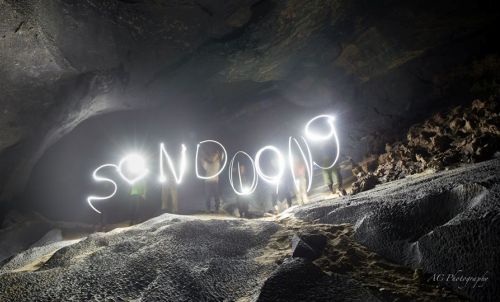 SONDOONg
AG Photography